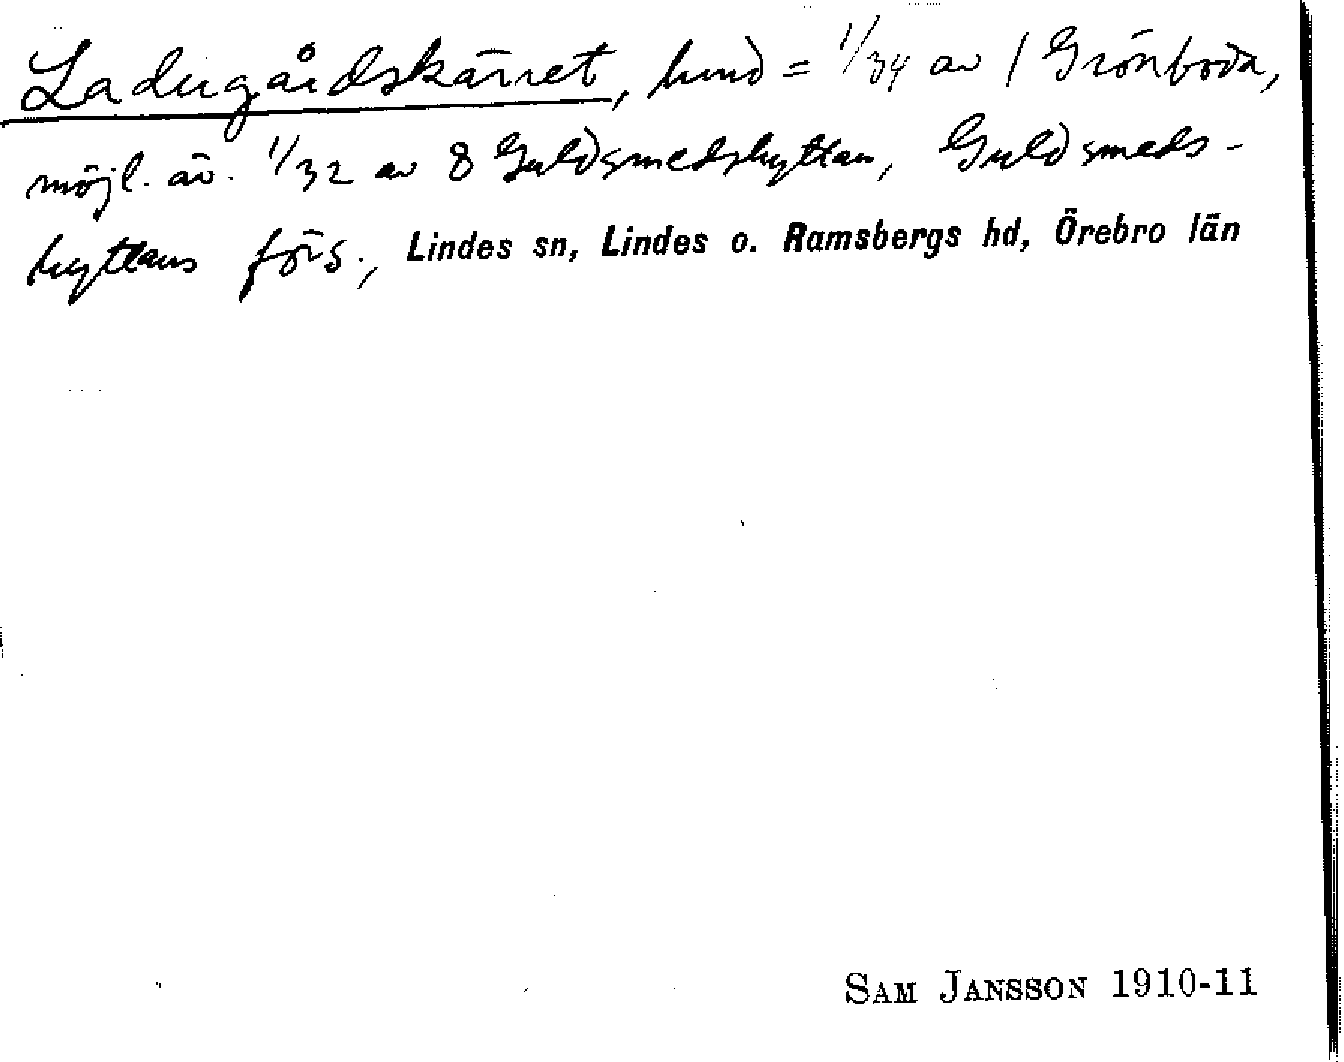 Ladugårdskärret, hmd = 1/34 av 1 Grönboda,
möjl. äv. 1/32 av 8 Guldsmedshyttan, Guldsmeds-
hyttans förs., Lindes sn, Lindes o. Ramsbergs hd, Örebro län
SAM JANSSON 1910-11